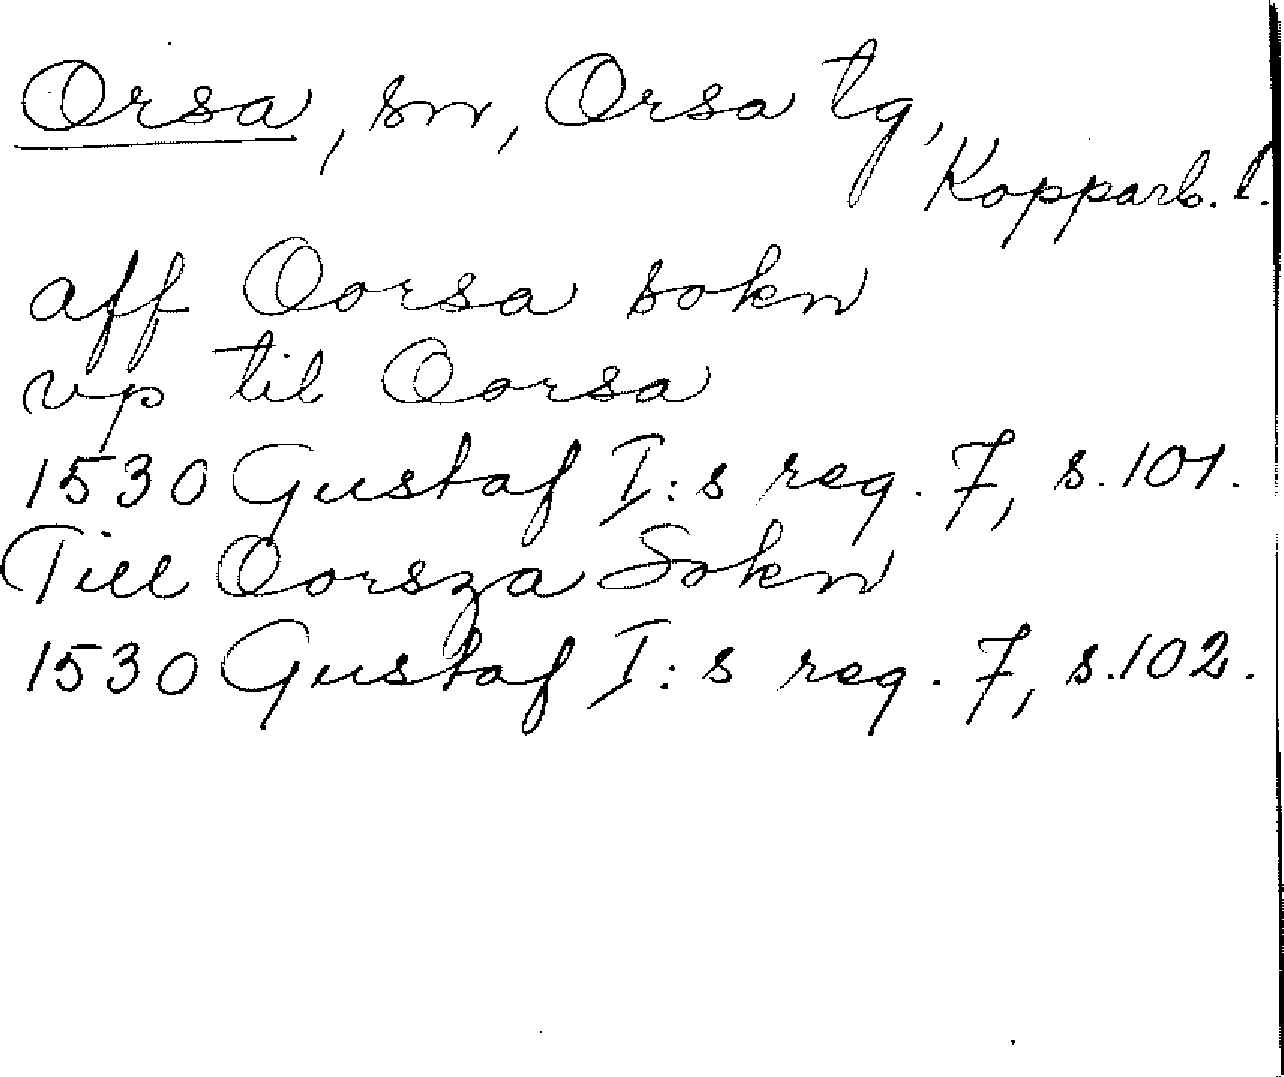 Orsa, sn, Orsa tg, Kopparb. l.
aff Oorsa sokn
vp til Oorsa
1530 Gustaf I:s reg. 7, s. 101.
Till Oorsza Sokn
1530 Gustaf I:s reg. 7, s. 102.